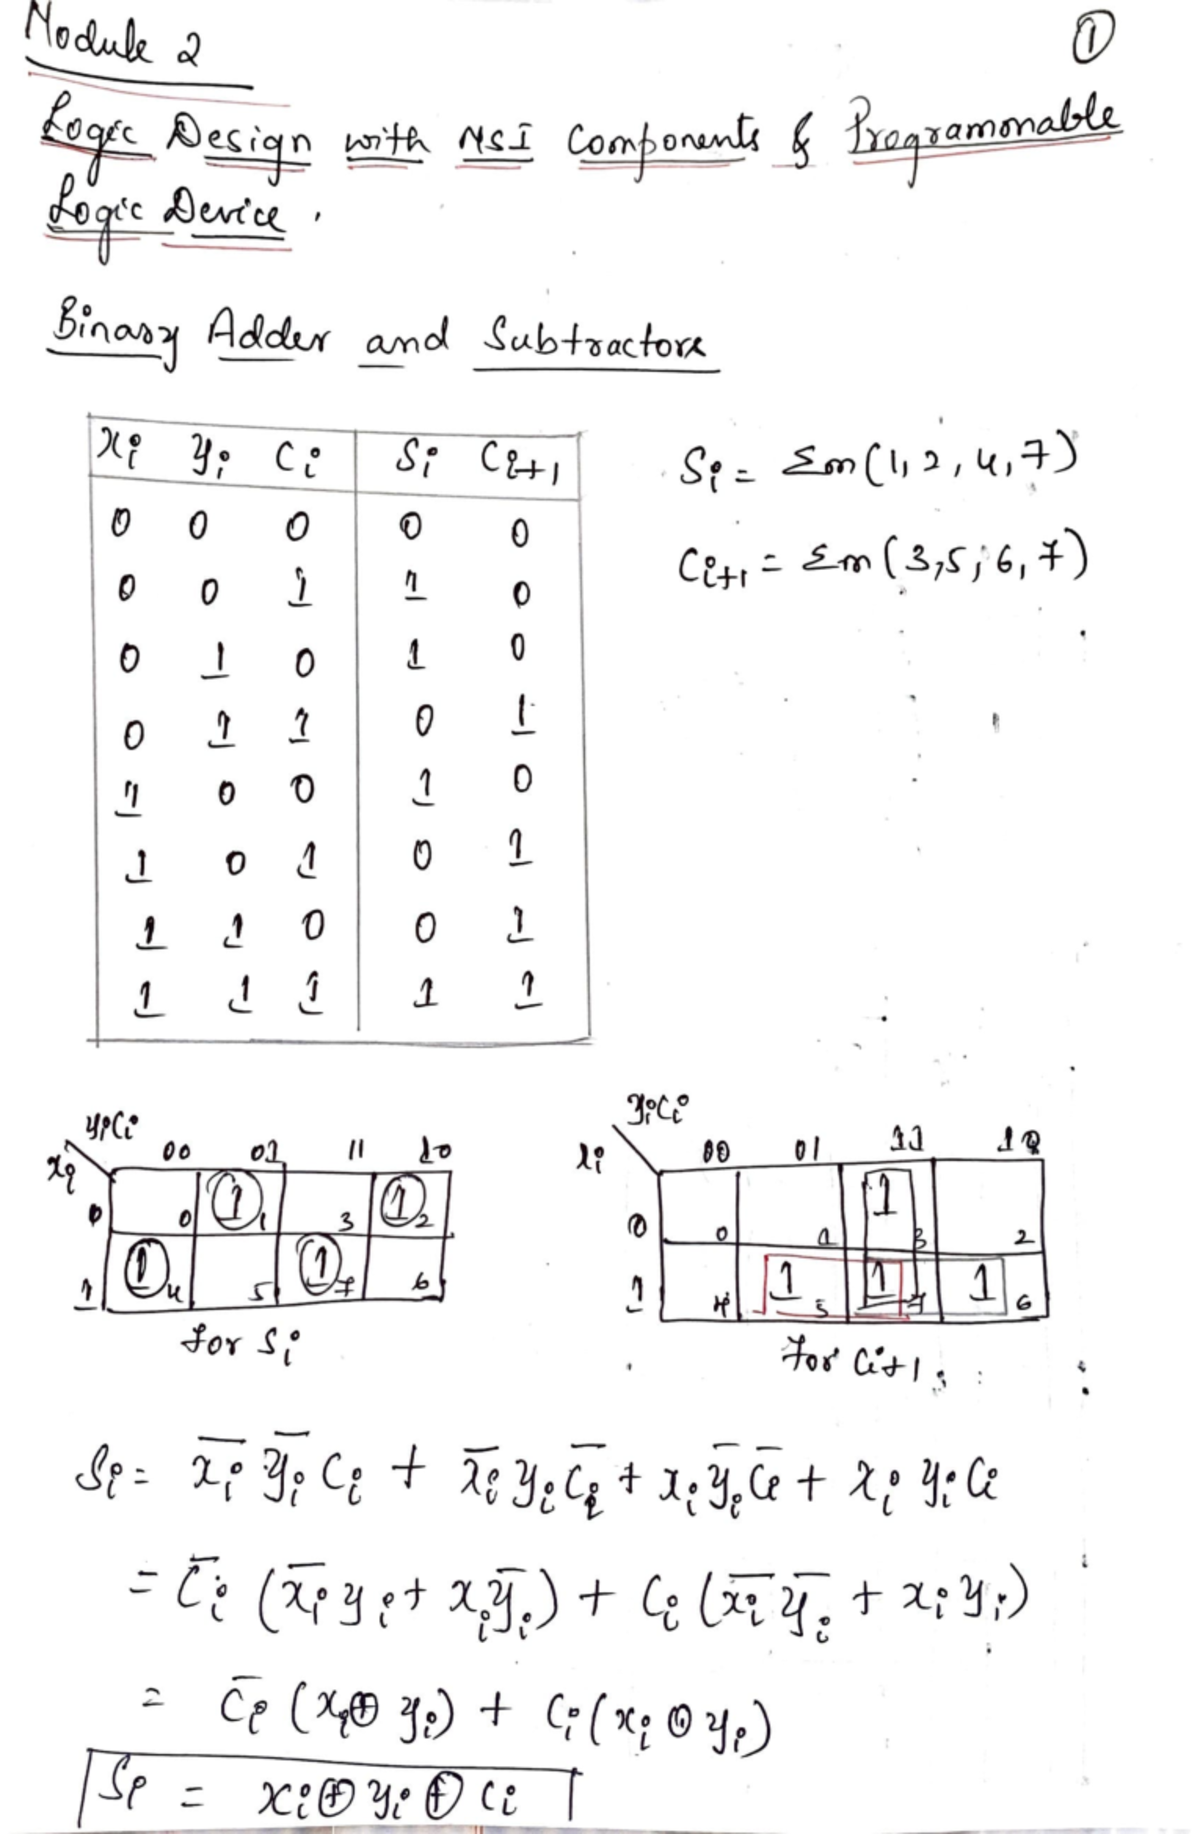 Module 2
①
Logic Design with MSI Components & Programmable
Logic Device.
Binary Adder and Subtractors
xi yi Ci Si Ci+1
0 0 0 0 0
0 0 1 1 0
0 1 0 1 0
0 1 1 0 1
1 0 0 1 0
1 0 1 0 1
1 1 0 0 1
1 1 1 1 1
Si = Σm(1, 2, 4, 7)
Ci+1 = Σm(3, 5, 6, 7)
yiCi
xi 00 01 11 10
0 0 1 1 3 1 2
1 1 4 5 1 7 6
for Si
yiCi
xi 00 01 11 10
0 0 1 1 3 2
1 4 1 5 1 7 1 6
For Ci+1
Si = x̅i y̅i Ci + x̅i yi C̅i + xi y̅i C̅i + xi yi Ci
= C̅i (x̅i yi + xi y̅i) + Ci (x̅i y̅i + xi yi)
= C̅i (xi ⊕ yi) + Ci (xi ⊙ yi)
Si = xi ⊕ yi ⊕ Ci